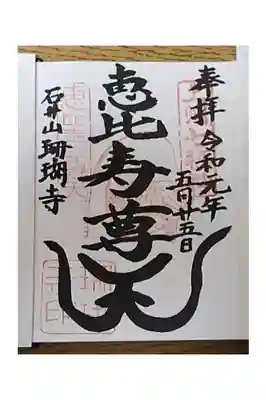 奉拝 令和元年
五月廿五日
恵比寿尊天
石井山珊瑚寺